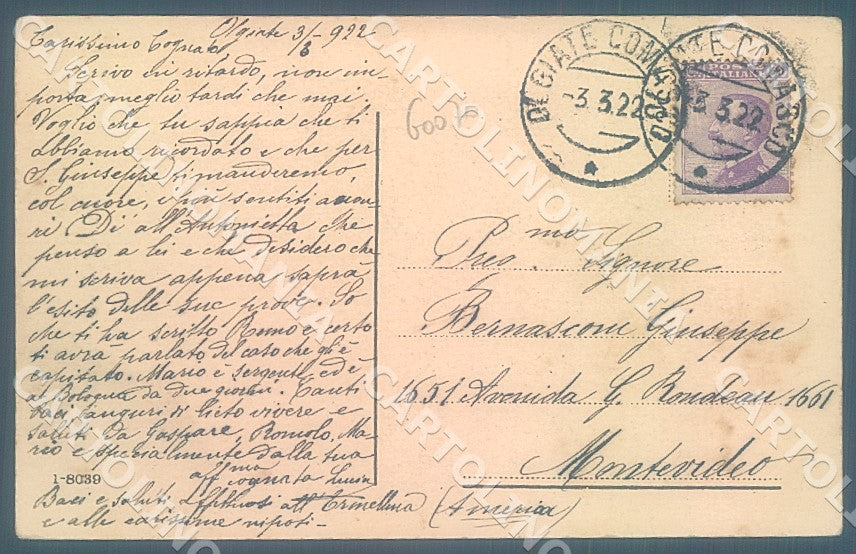 Olgiate 3/3 922
Carissimo Cognato
Scrivo in ritardo, non im-
porta, meglio tardi che mai.
Voglio che tu sappia che ti
abbiamo ricordato e che per
S. Giuseppe rimanderemo,
col cuore, i più sentiti augu-
ri Di' all'Antonietta che
penso a lei e che desidero che
mi scriva appena saprà
l'esito delle sue prove. So
che ti ha scritto e certo
ti avrà parlato del caso che gli è
capitato. Mario è sergente ed è
a Bologna da due giorni. Tanti
baci auguri di lieto vivere e
saluti da Gaspare, Romolo, Ma-
rco e specialmente dalla tua
aff.ma cognata Lucia
Baci e saluti Ermellina
e alle carissime nipoti-
1-8039
6007
OLGIATE COMASCO
-3. 3.22
OLGIATE COMASCO
-3. 3.22
POSTE ITALIANE
Preg.mo Signore
Bernasconi Giuseppe
1651 Avenida G. Rondeau 1661
Montevideo
(America)
CARTOLINOMANIA